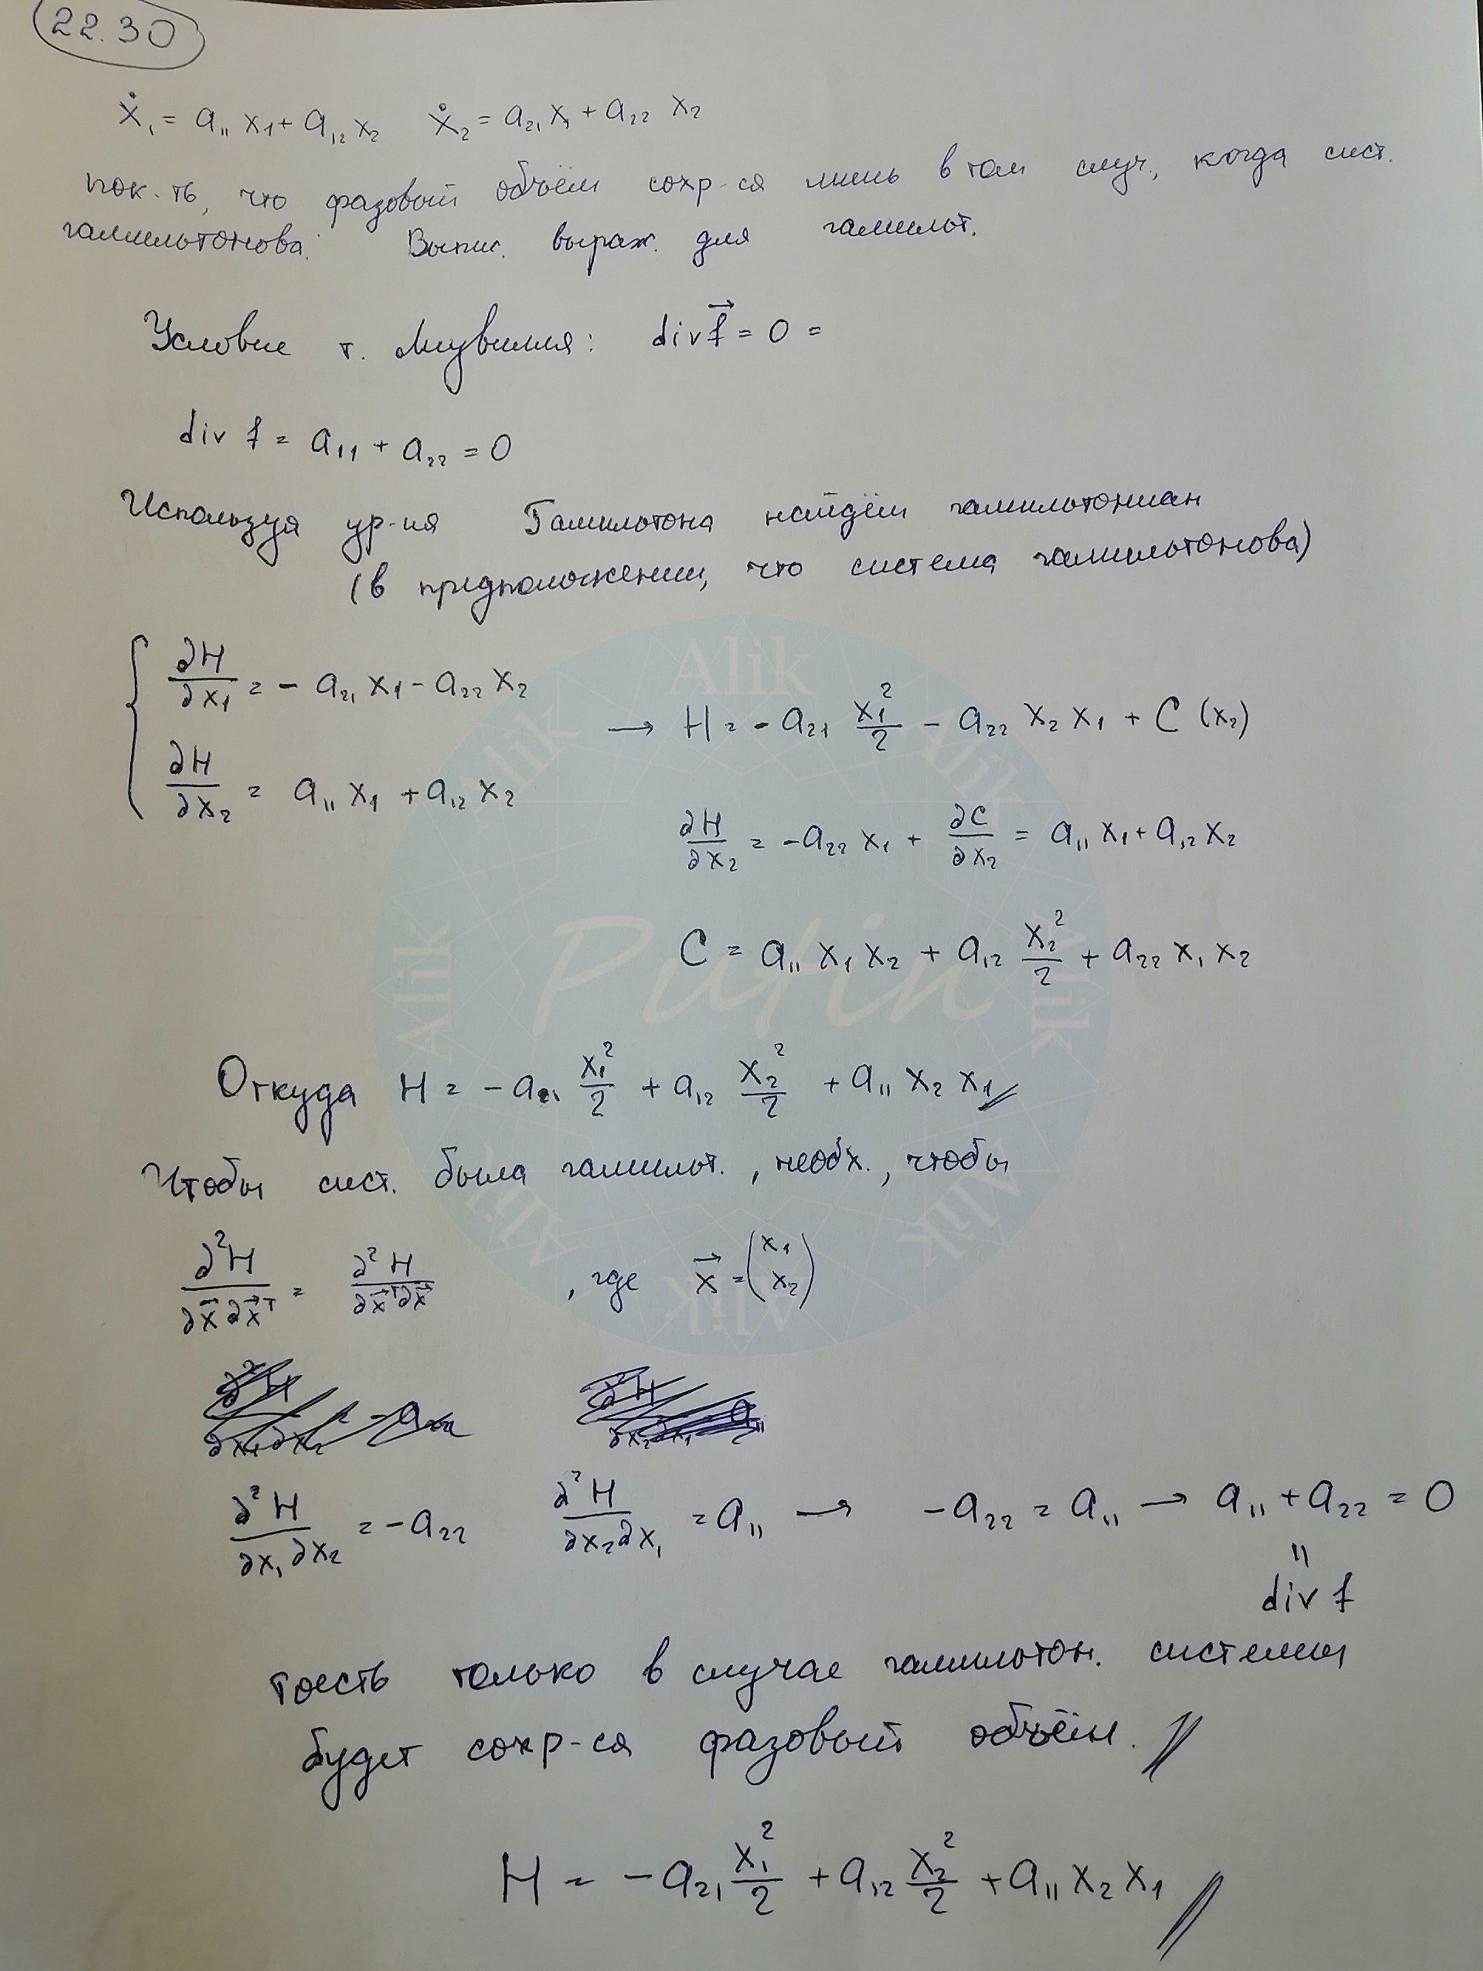 22.30
ẋ₁ = a₁₁ x₁ + a₁₂ x₂   ẋ₂ = a₂₁ x₁ + a₂₂ x₂
пок-ть, что фазовый объём сохр-ся лишь в том случ., когда сист.
гамильтонова. Выпис. выраж. для гамильт.
Условие т. Лиувилля: div f⃗ = 0 =
div f = a₁₁ + a₂₂ = 0
Используя ур-ия Гамильтона найдём гамильтониан
(в предположении, что система гамильтонова)
{ ∂H/∂x₁ = - a₂₁ x₁ - a₂₂ x₂
∂H/∂x₂ = a₁₁ x₁ + a₁₂ x₂
→ H = - a₂₁ x₁²/2 - a₂₂ x₂ x₁ + C (x₂)
∂H/∂x₂ = -a₂₂ x₁ + ∂C/∂x₂ = a₁₁ x₁ + a₁₂ x₂
C = a₁₁ x₁ x₂ + a₁₂ x₂²/2 + a₂₂ x₁ x₂
Откуда H = - a₂₁ x₁²/2 + a₁₂ x₂²/2 + a₁₁ x₂ x₁
Чтобы сист. была гамильт., необх., чтобы
∂²H/∂x⃗∂x⃗ᵀ = ∂²H/∂x⃗ᵀ∂x⃗ , где x⃗ = (x₁ x₂)
∂²H/∂x₁∂x₂ = -a₂₂   ∂²H/∂x₂∂x₁ = a₁₁ → -a₂₂ = a₁₁ → a₁₁ + a₂₂ = 0
=
div f
тоесть только в случае гамильтон. системы
будет сохр-ся фазовый объём.
H = - a₂₁ x₁²/2 + a₁₂ x₂²/2 + a₁₁ x₂ x₁
Alik
Alik
Alik
Alik
Alik
Alik
Alik
Alik
Putin